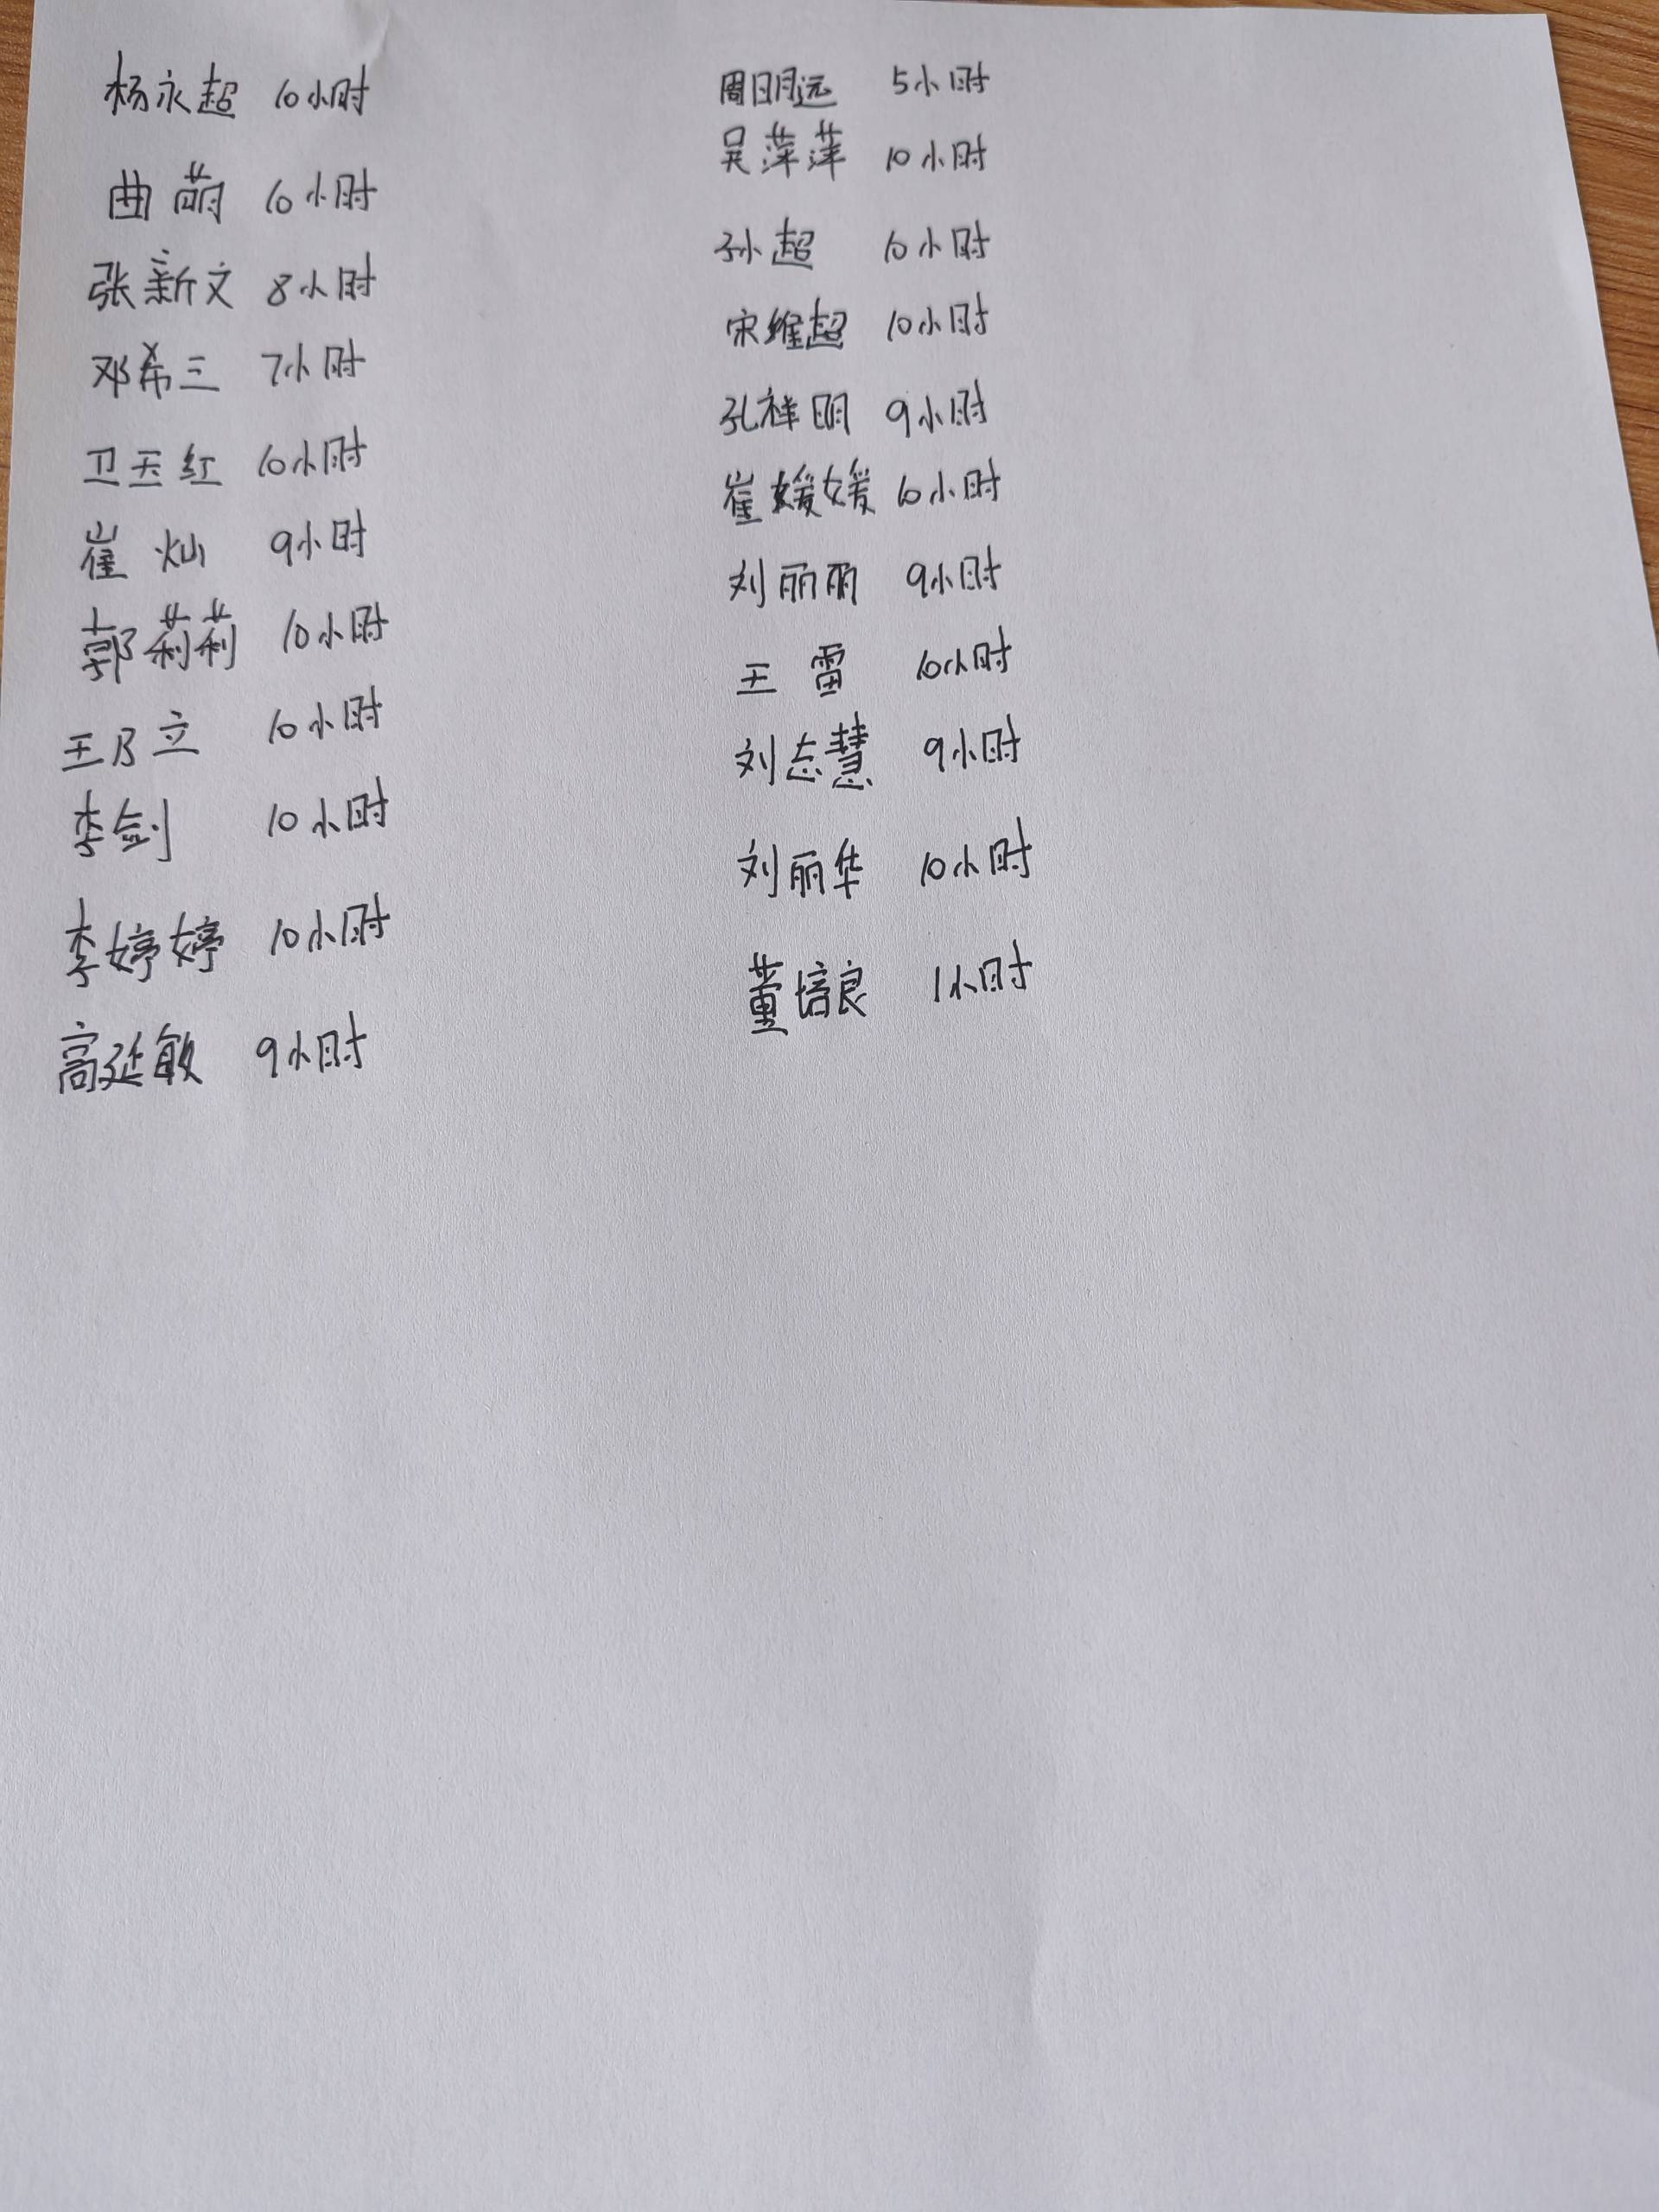 杨永超 10小时
曲萌 10小时
张新文 8小时
邓希三 7小时
卫玉红 10小时
崔灿 9小时
郭莉莉 10小时
王乃立 10小时
李剑 10小时
李婷婷 10小时
高延敏 9小时
周明远 5小时
吴萍萍 10小时
孙超 10小时
宋维超 10小时
孔祥明 9小时
崔媛媛 10小时
刘丽丽 9小时
王雷 10小时
刘志慧 9小时
刘丽华 10小时
董培良 1小时